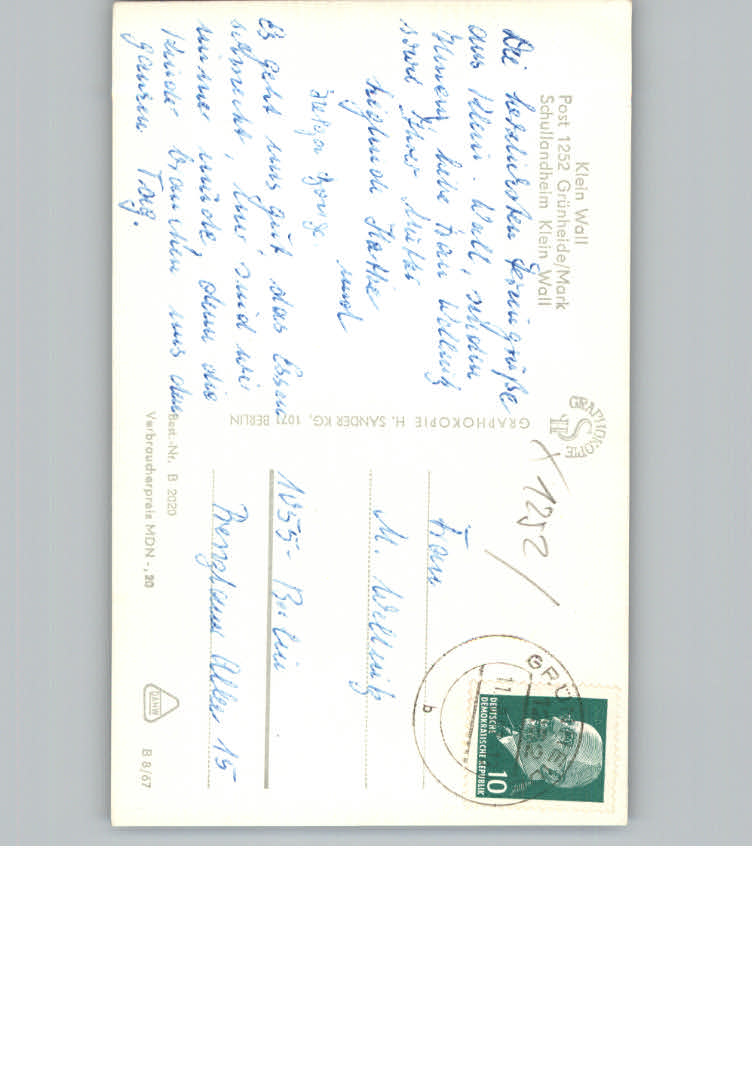 Klein Wall
Post 1252 Grünheide/Mark
Schullandheim Klein Wall
Die herzlichsten Feriengrüße
aus Klein-Wall, senden
Ihnen, liebe Frau Wellnitz
sowie Ihrer Mutter
Sieglinde Kathe
und
Helga
Es geht uns gut das Essen
schmeckt, nur sind wir
immer müde, denn die
Kinder brauchen uns den
ganzen Tag.
Best.-Nr. B 2020
Verbraucherpreis MDN -,20
GRAPHOKOPIE H. SANDER KG, 1071 BERLIN
GRAPHOKOPIE
HS
X 1252 /
Frau
M. Wellnitz
1055-Berlin
Allee 15
b
11
DEUTSCHE
DEMOKRATISCHE REPUBLIK
10
B 8/67